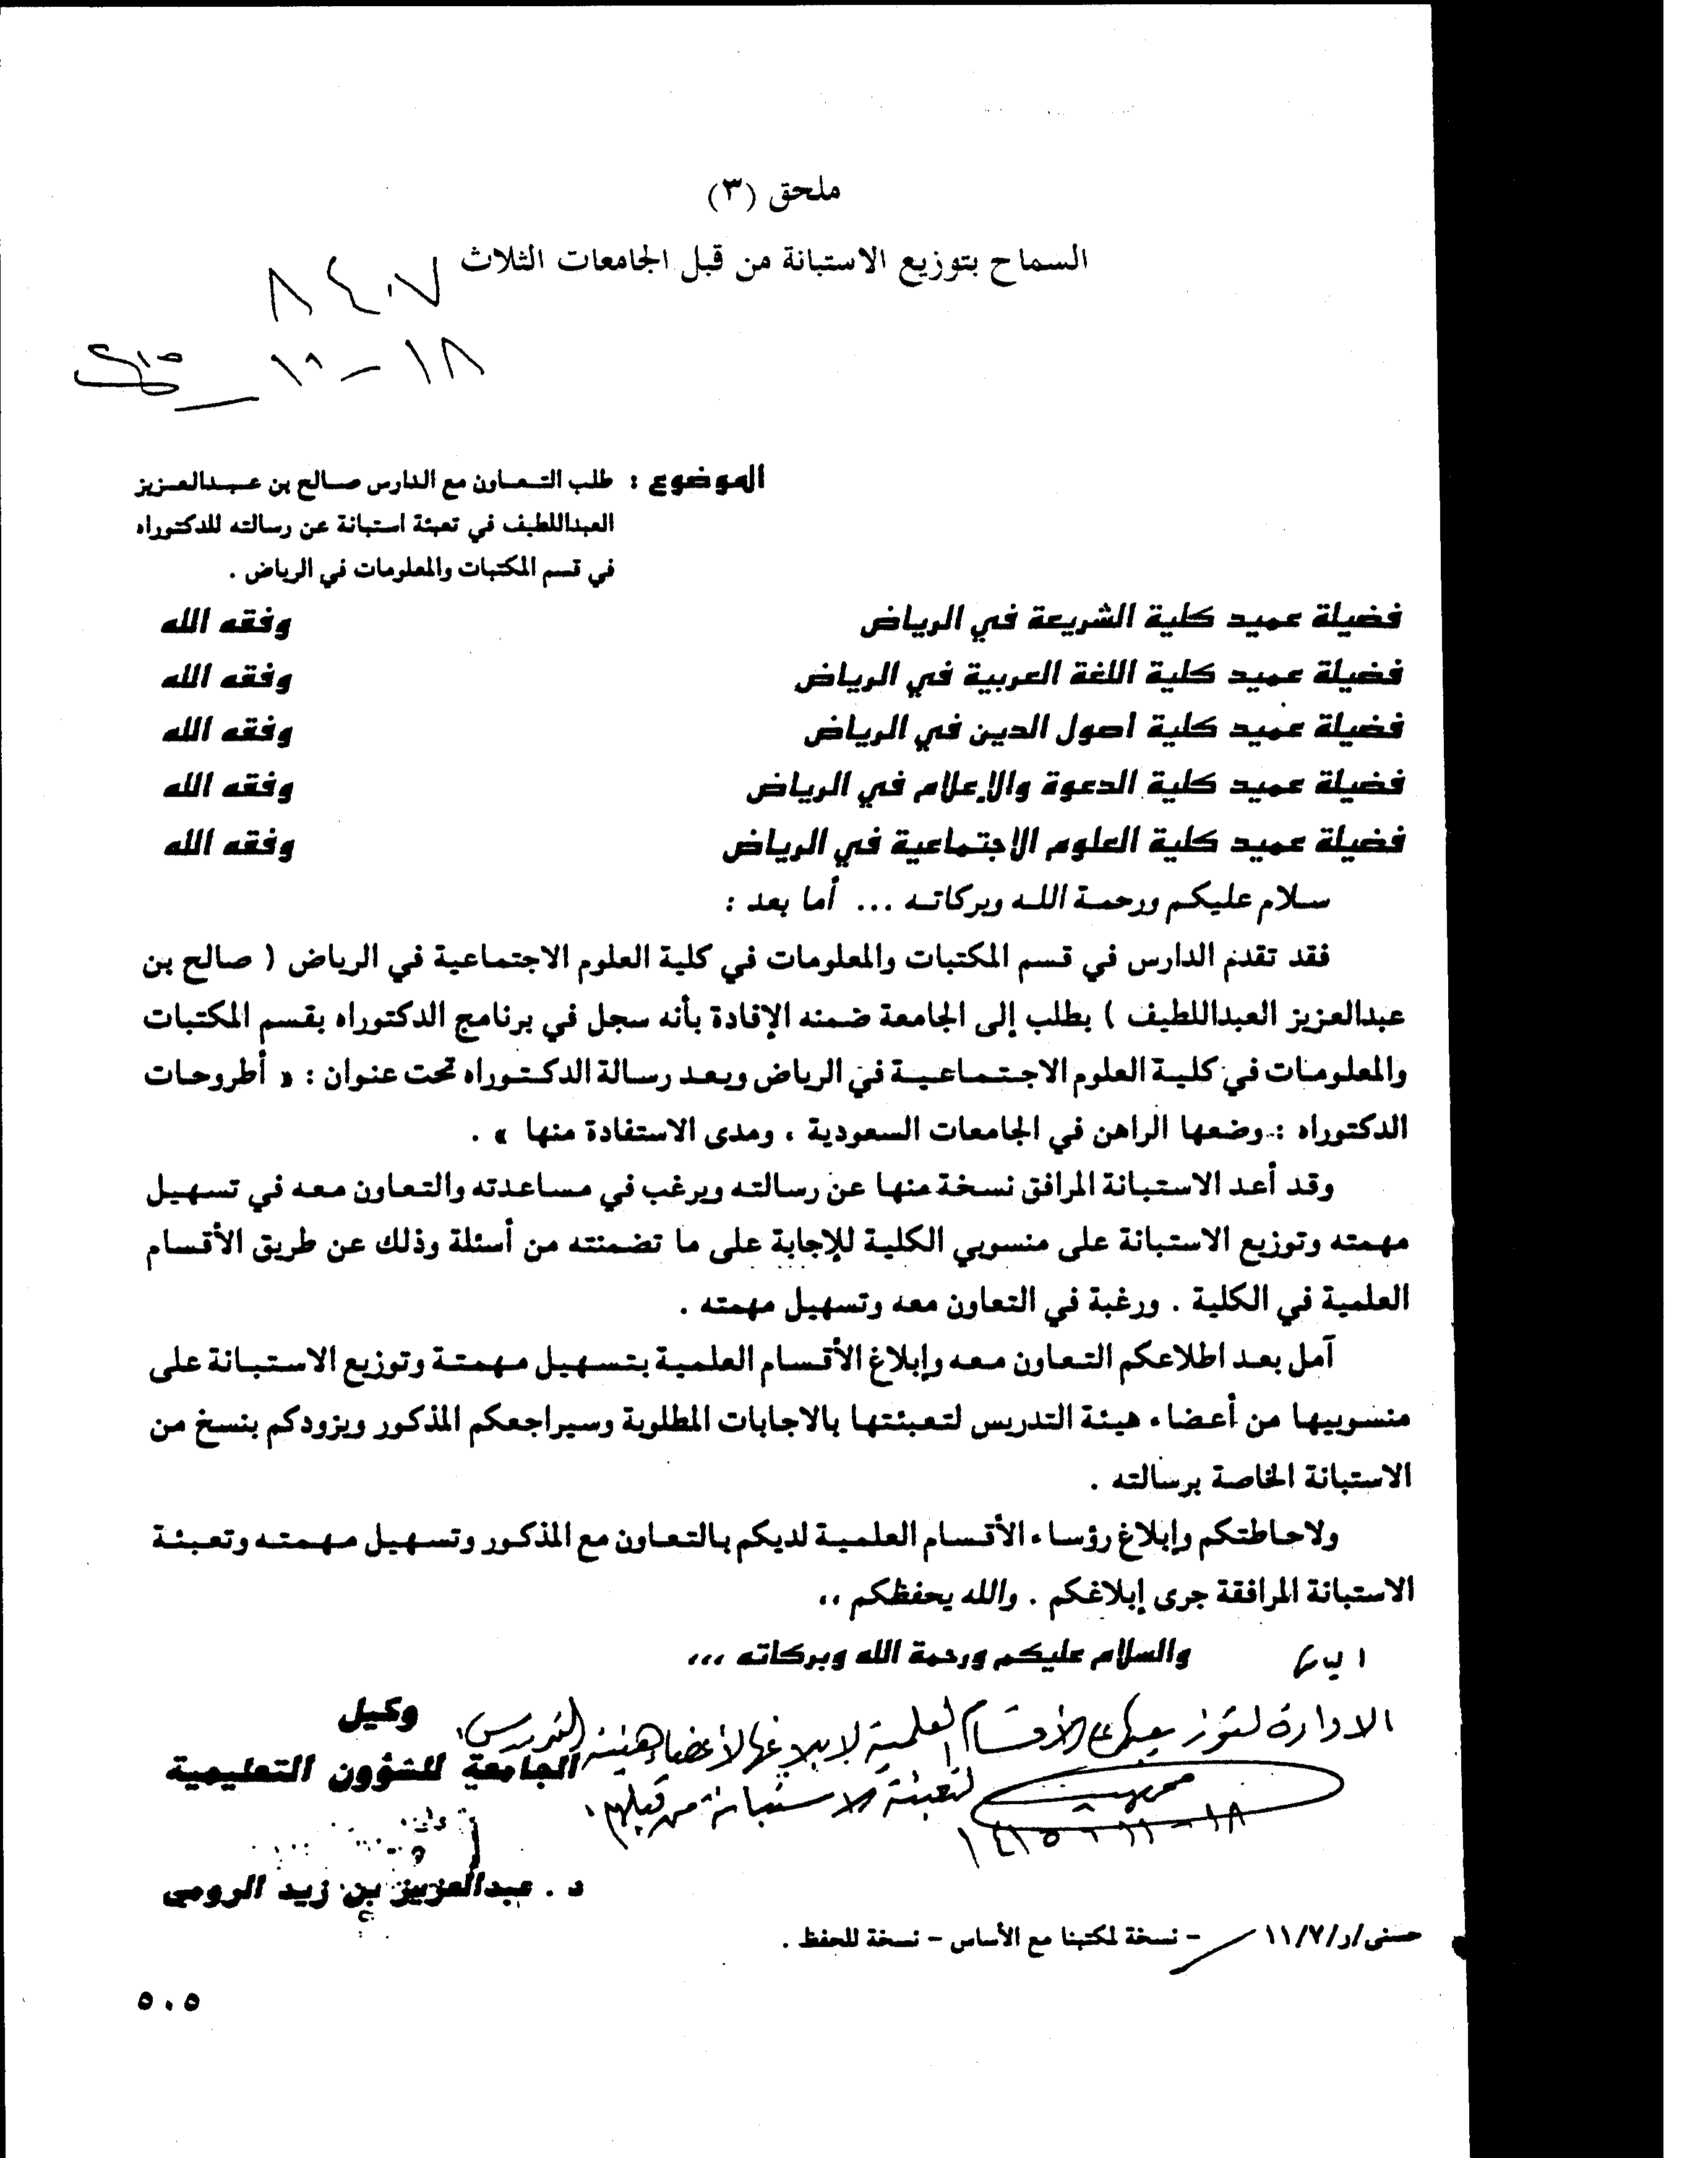 ملحق (٣)
السماح بتوزيع الاستبانة من قبل الجامعات الثلاث
٨٤٠٧
١٨ - ١٠ -
الموضوع : طلب التعاون مع الدارس صالح بن عبدالعزيز
العبداللطيف في تعبئة استبانة عن رسالته للدكتوراه
في قسم المكتبات والمعلومات في الرياض .
فضيلة عميد كلية الشريعة في الرياض وفقه الله
فضيلة عميد كلية اللغة العربية في الرياض وفقه الله
فضيلة عميد كلية أصول الدين في الرياض وفقه الله
فضيلة عميد كلية الدعوة والإعلام في الرياض وفقه الله
فضيلة عميد كلية العلوم الاجتماعية في الرياض وفقه الله
سلام عليكم ورحمة الله وبركاته ... أما بعد :
فقد تقدم الدارس في قسم المكتبات والمعلومات في كلية العلوم الاجتماعية في الرياض ( صالح بن
عبدالعزيز العبداللطيف ) بطلب إلى الجامعة ضمنه الإفادة بأنه سجل في برنامج الدكتوراه بقسم المكتبات
والمعلومات في كلية العلوم الاجتماعية في الرياض ويعد رسالة الدكتوراه تحت عنوان : « أطروحات
الدكتوراه : وضعها الراهن في الجامعات السعودية ، ومدى الاستفادة منها » .
وقد أعد الاستبانة المرافق نسخة منها عن رسالته ويرغب في مساعدته والتعاون معه في تسهيل
مهمته وتوزيع الاستبانة على منسوبي الكلية للإجابة على ما تضمنته من أسئلة وذلك عن طريق الأقسام
العلمية في الكلية . ورغبة في التعاون معه وتسهيل مهمته .
آمل بعد اطلاعكم التعاون معه وإبلاغ الأقسام العلمية بتسهيل مهمتة وتوزيع الاستبانة على
منسوبيها من أعضاء هيئة التدريس لتعبئتها بالاجابات المطلوبة وسيراجعكم المذكور ويزودكم بنسخ من
الاستبانة الخاصة برسالته .
ولاحاطتكم وإبلاغ رؤساء الأقسام العلمية لديكم بالتعاون مع المذكور وتسهيل مهمته وتعبئة
الاستبانة المرافقة جرى إبلاغكم . والله يحفظكم ،،
والسلام عليكم ورحمة الله وبركاته ،،،
الادارة لتوزيعها على الأقسام العلمية لابلاغها لأعضاء هيئة التدريس
لتعبئة الاستبانة من قبلهم
١٨ - ١١ - ١٤١٥
وكيل
الجامعة للشؤون التعليمية
د . عبدالعزيز بن زيد الرومي
حسنى/ر/١١/٧ - نسخة لمكتبنا مع الأساس - نسخة للحفظ .
٥٠٥